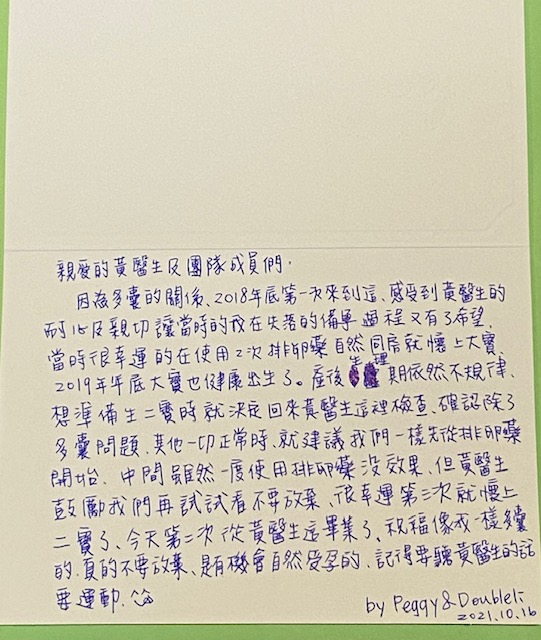 親愛的黃醫生及團隊成員們.
因為多囊的關係、2018年底第一次來到這、感受到黃醫生的
耐心及親切讓當時的我在失落的備孕過程又有了希望,
當時很幸運的在使用2次排卵藥自然同房就懷上大寶、
2019年年底大寶也健康出生了。產後生理期依然不規律、
想準備生二寶時就決定回來黃醫生這裡檢查、確認除了
多囊問題、其他一切正常時、就建議我們一樣先從排卵藥
開始、中間雖然一度使用排卵藥沒效果、但黃醫生
鼓勵我們再試試看不要放棄、很幸運第三次就懷上
二寶了、今天第二次從黃醫生這畢業了、祝福像我一樣多囊
的、真的不要放棄、是有機會自然受孕的、記得要聽黃醫生的話
要運動.
by Peggy & Doubleli
2021.10.16